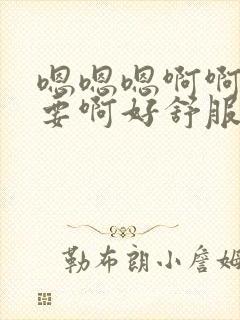 嗯嗯嗯啊啊
要啊好舒服
勒布朗小詹姆